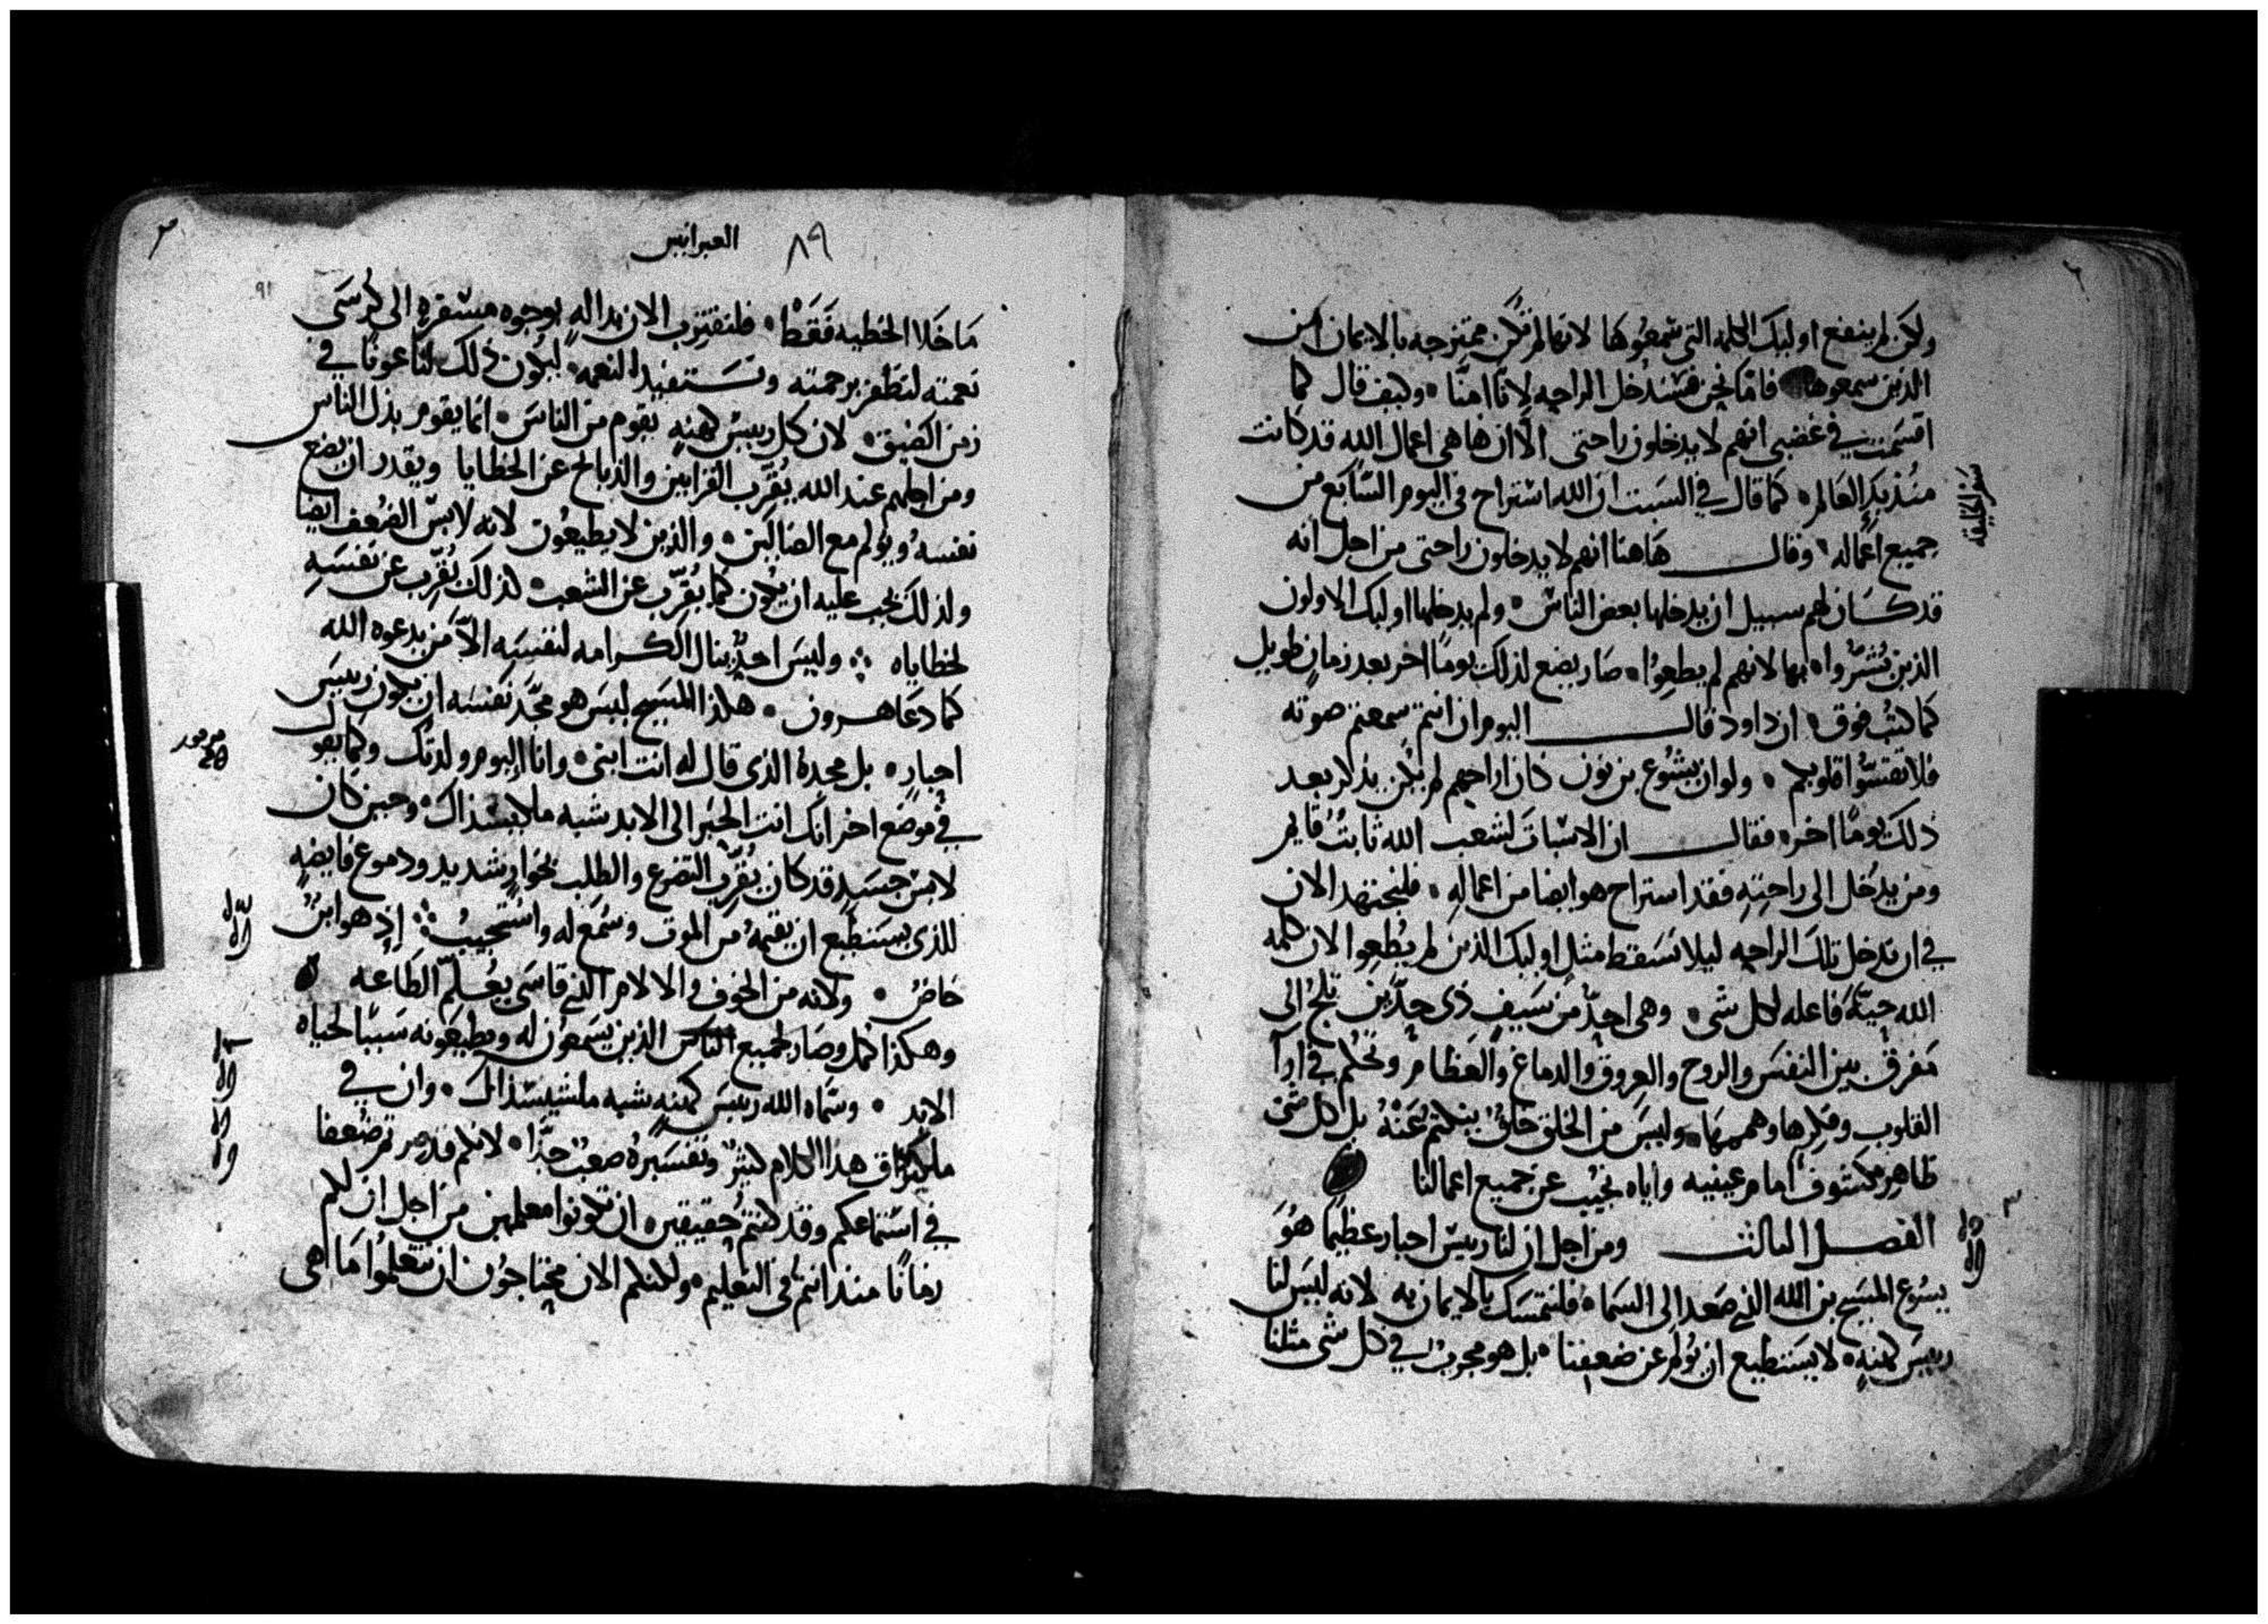 ولكن لم ينفع اوليك الكلمه التي سمعوها لانها لم تكن ممتزجه بالايمان من
الذين سمعوها فاما نحن فسندخل الراحه لانا امنا وكيف قال كما
اقسمت في غضبي انهم لا يدخلون راحتي الا ان ها هي اعمال الله قد كانت
منذ بدء العالم كما قال في السبت ان الله استراح في اليوم السابع من
سفر الخليقه
جميع اعماله وقال هاهنا انهم لا يدخلون راحتي من اجل انه
قد كان لهم سبيل ان يدخلها بعض الناس ولم يدخلها اوليك الاولون
الذين بُشّروا بها لانهم لم يطعوا صار يضع لذلك يوما اخر بعد زمان طويل
كما كتب فوق ان داود قال اليوم ان انتم سمعتم صوته
فلا تقسوا قلوبكم ولو ان يشوع بن نون كان اراحهم لم يكن يذكر بعد
ذلك يوما اخر فقال ان الاسبات لشعب الله ثابت قايم
ومن يدخل الى راحته فقد استراح هو ايضا من اعماله فلنجتهد الان
في ان ندخل تلك الراحه ليلا نسقط مثل اوليك الذين لم يُطعوا لان كلمه
الله حيّة فاعله لكل شي وهي احدّ من سيف ذي حدّين تلج الى
مفرق بين النفس والروح والعروق والدماغ والعظام وتحكم في اراآ
القلوب وفكرها وهممها وليس من الخلق خلق ينكتم عنه بل كل شي
ظاهر مكشوف امام عينيه واياه نجيب عن جميع اعمالنا
الفصل الثالث ومن اجل ان لنا رييس احبار عظيما هو
يسوع المسيح بن الله الذي صعد الى السماء فلنتمسك بالايمان به لانه ليس لنا
رييس كهنه لا يستطيع ان يولم عن ضعفنا بل هو مجرب في كل شي مثلنا
٨٩ العبرانيين
٩١
ما خلا الخطيه فقط فلنقترب الان بوجوه مسفره الى كرسي
نعمته لنظفر برحمته ونستفيد النعمه ليكون ذلك لنا عونا في
زمن الضيق لان كل رييس كهنه يقوم من الناس انما يقوم بدل الناس
ومن اجلهم عند الله يُقرّب القرابين والذبايح عن الخطايا ويقدر ان يضع
نفسه ويولم مع الضالين والذين لا يطيعون لانه لابس الضعف ايضا
ولذلك يجب عليه ان يكون كما يُقرّب عن الشعب كذلك يُقرّب عن نفسه
لخطاياه وليس احد ينال الكرامه لنفسه الا من يدعوه الله
كما دعا هرون هكذا المسيح ليس هو مجّد نفسه ان يكون رييس
احبار بل مجده الذي قال له انت ابني وانا اليوم ولدتك وكما يقول
مزمور
في موضع اخر انك انت الحبر الى الابد شبه ملشيسذاك وحين كان
لابس جسد قد كان يُقرّب التضرع والطلب بخوار شديد ودموع فايضه
للذي يستطيع ان يقيمه من الموت وسُمع له واستجيب اذ هو ابن
خاص ولانه من الخوف والالام التي قاسى يعُلّم الطاعه
وهكذا كمل وصار لجميع الناس الذين يسمعون له ويطيعونه سببا لحياه
الابد وسماه الله رييس كهنه شبه ملشيسذاك وان في
هذا الكلام كثير وتفسيره صعب جدا لانكم قد صرتم ضعفا
في استماعكم وقد كنتم حقيقين ان تكونوا معلمين من اجل ان لكم
زمانا منذ انتم في التعليم ولكنكم الان محتاجون ان تتعلموا ما هي